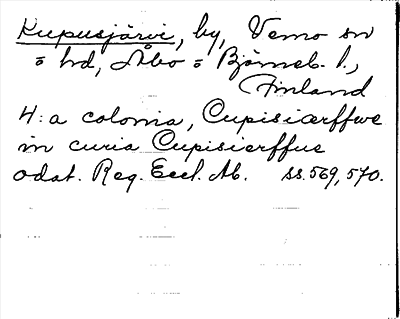 Kupusjärvi, by, Vemo sn
= hd, Åbo = Björneb. l.,
Finland
4: a colonia, Cupisiærffwe
in curia Cupisierffue
odat. Reg. Eccl. Ab. ss. 569, 570.